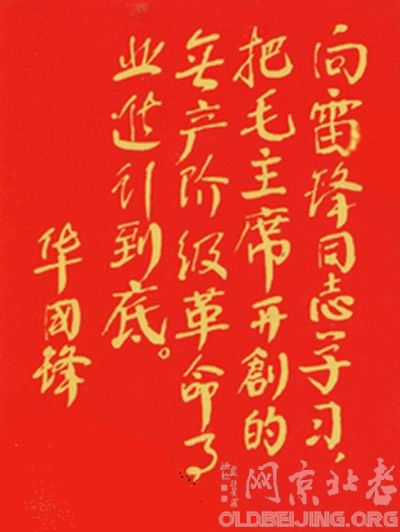 向雷锋同志学习，
把毛主席开創的
无产阶级革命事
业進行到底。
华國锋
老北京网
OLDBEIJING.ORG